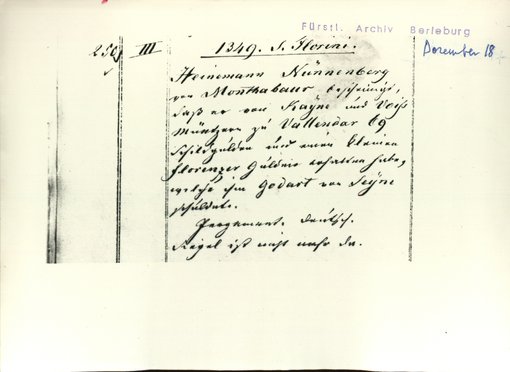 Fürstl. Archiv Berleburg
Dezember 18
250 III 1349. S. Florini.
Heinemann Nünnenberg
von Monthabaur bescheinigt,
daß er von Hayne und Voiß
Müntzern zu Vallendar 69
Schildgulden und einen kleinen
florenzer Gulden erhalten habe,
welche ihm Godart von Seyne
schuldete.
Pergament. Deutsch.
Siegel ist nicht mehr da.